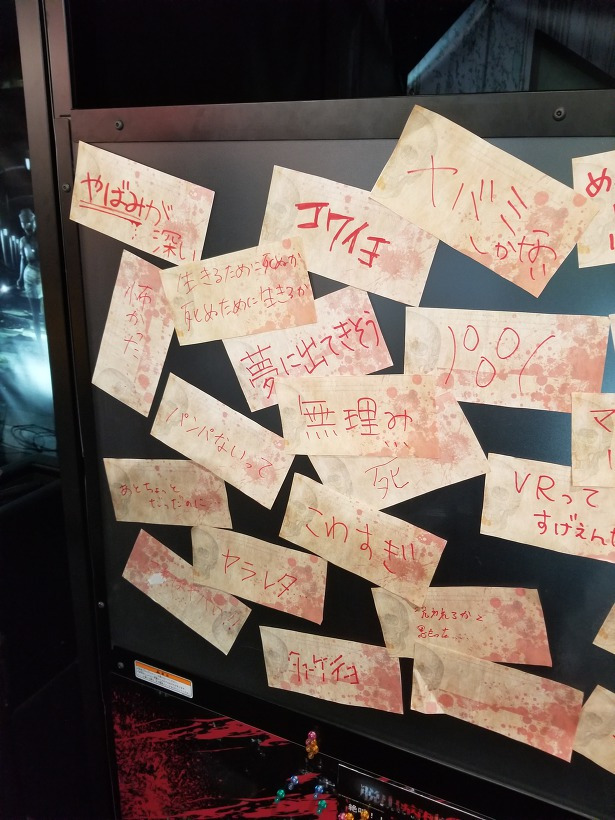 やばみが
深い!
コワイヨ
ヤバミ
しかない
め
生きるために死ぬか
死ぬために生きるか
怖かった
夢に出てきそう
パンパないって
無理み...
死
VRって
すげえん
マ
あとちょっと
だったのに
こわすぎい
ヤラレタ...
呪われるかと
思った....